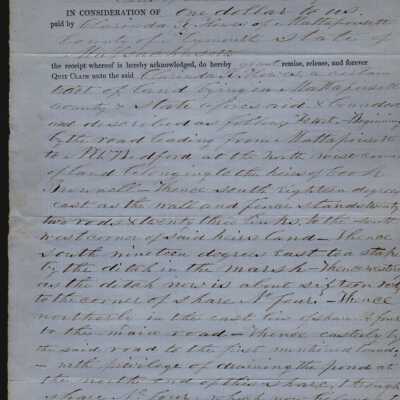 IN CONSIDERATION OF one dollar to us.
paid by Clarinda A. Howes of Mattapoisett
County of Plymouth State of
Massachusetts
the receipt whereof is hereby acknowledged, do hereby grant remise, release, and forever
QUIT CLAIM unto the said Clarinda A. Howes, a certain
Lot of Land lying in Mattapoisett
County & State aforesaid & bounded
and described as follows First - Beginning
by the road leading from Mattapoisett
to N. Bedford at the north west corner
of land belonging to the heirs of
- Thence south eighteen degrees
east as the wall and fence stands twenty
two rods & twenty three links, to the south
west corner of said heirs land - Thence
South nineteen degrees east to a stake
by the ditch in the marsh - Thence westerly
as the ditch now is about fifteen rods
to the corner of share No four - Thence
northerly in the east line of share No four
to the main road - Thence easterly by
the said road to the first mentioned bound,
- with privilege of draining the pond at
the north end of this share, through
share No four